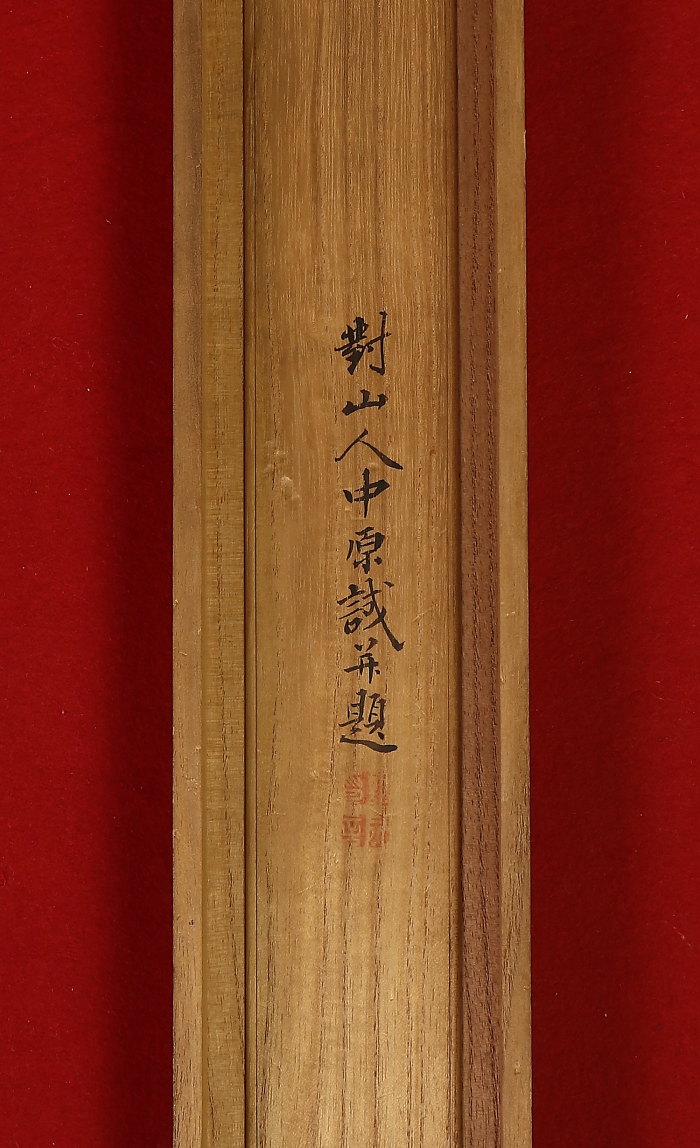 對山人中原誠并題